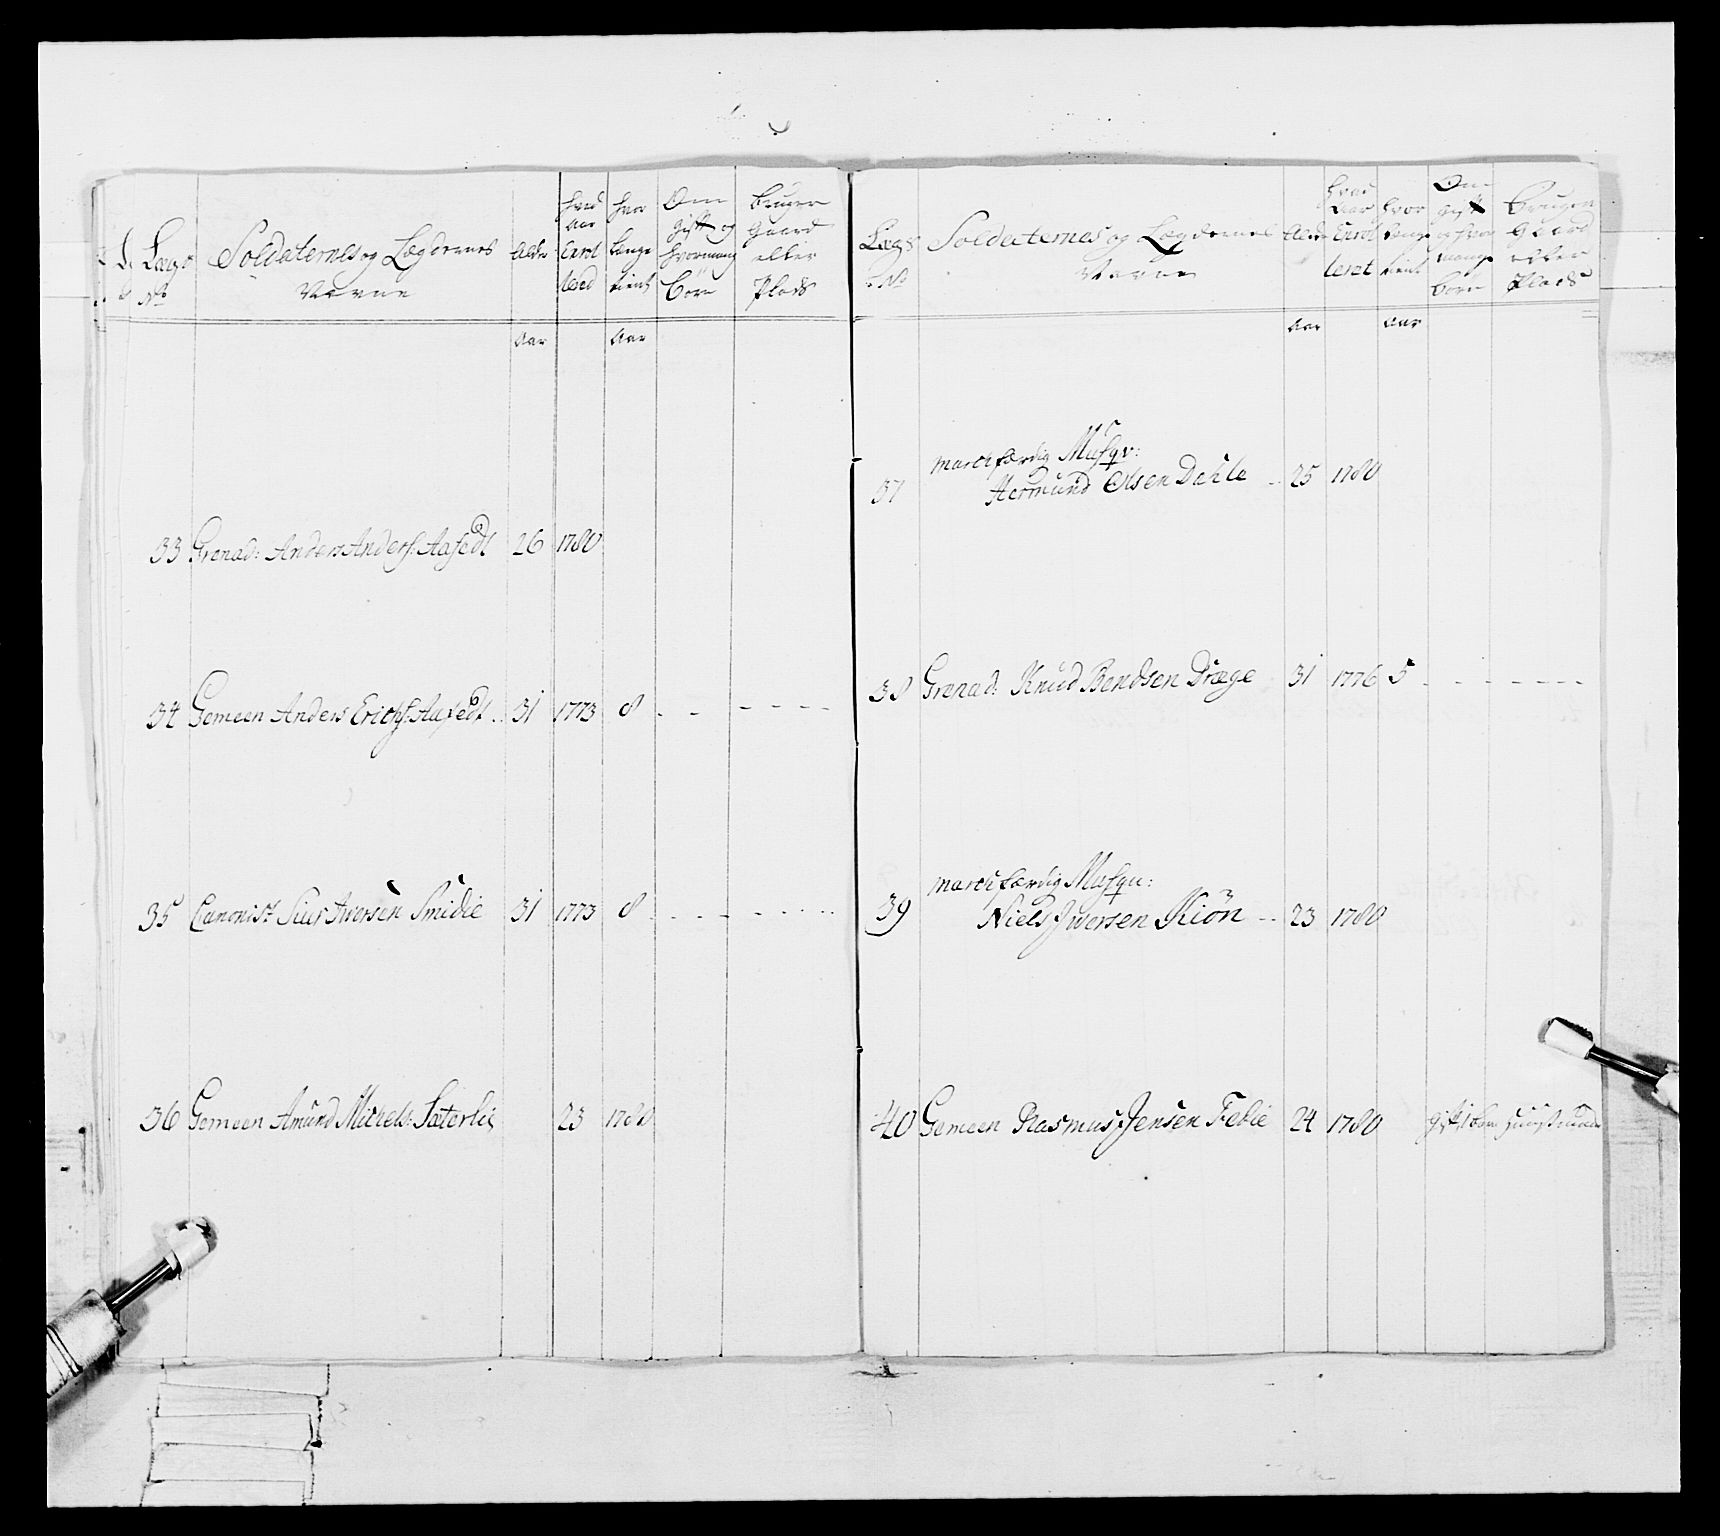 Lægs No
Soldaternes og Lægdernes Navne
Alder
hvad Aar Enrollered
hvor længe tient
Om gift og hvormange Børn
bruger Gaard eller Plads
Aar Aar
33 Grenad: Anders Anders: Aasedt 26 1780
34 Gemeen Anders Erichs: Aasedt .. 31 1773 8 - - - - - -
35 Canonist Siur Iversen Smidie 31 1773 8 - - - - - -
36 Gemeen Amund Michels: Sæterlie 23 1780
Lægs No
Soldaternes og Lægdernes Navne
Alder
hvad Aar Enrolleret
hvor længe tient
Om gift og hvor mange børn
bruger Gaard eller Plads
Aar Aar
marchfærdig Musqv:
37 Hermund Olsen Dahle .. 25 1780
38 Grenad: Knud Bendsen Dræge 31 1776 5 - - - - - -
marchfærdig Musqu:
39 Niels Iversen Kiøn .. 23 1780
40 Gemeen Rasmus Jensen Febie 24 1780 gift 1 barn